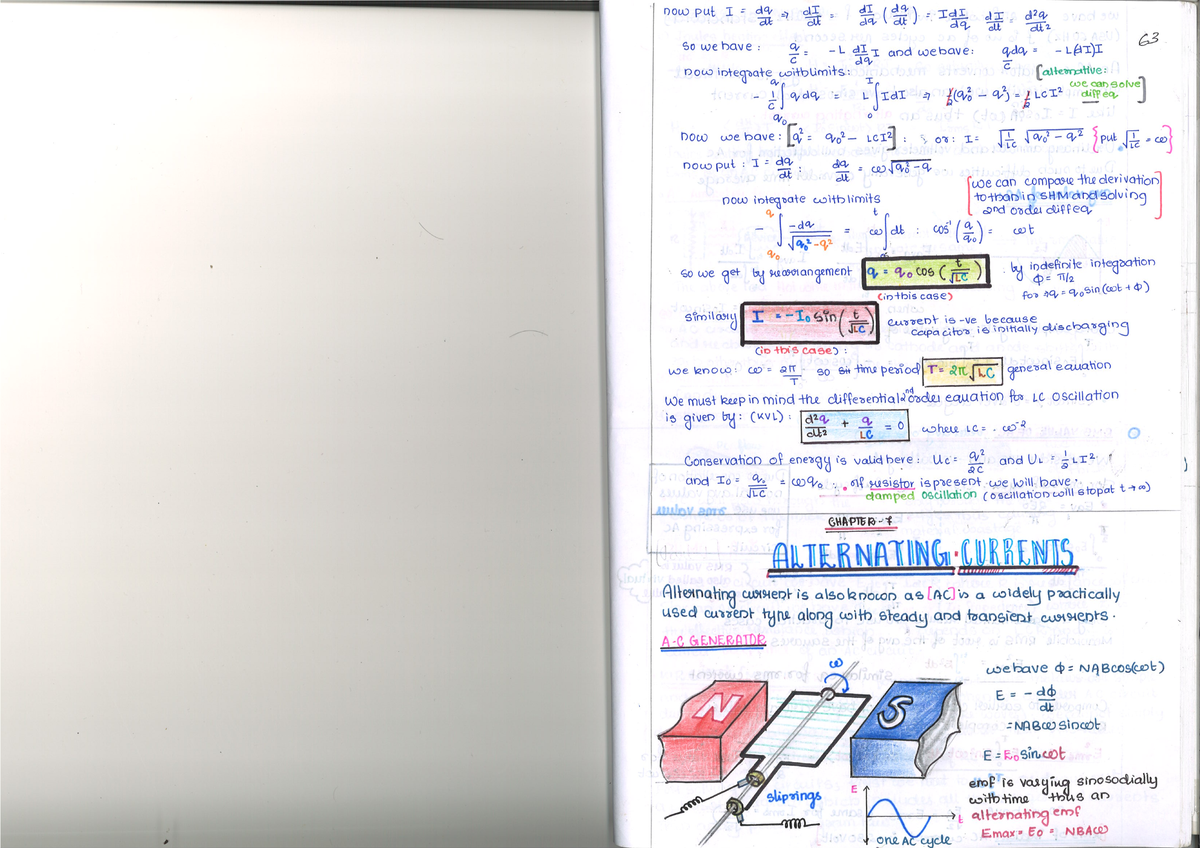 63
now put I = dq/dt ⇒ dI/dt = dI/dq (dq/dt) = IdI/dq dI/dt = d²q/dt²
So we have : q/c = -L dI/dq I and we have: qdq/c = -L(dI)I
now integrate with limits: [alternative: we can solve diff eq]
- 1/c ∫ q0 q qdq = L ∫ 0 I IdI ⇒ 1/2(q0² - q²) = 1/2 LCI²
now we have: [q² = q0² - LCI²] : or: I = √1/LC √q0² - q² {put √1/LC = ω}
now put : I = dq/dt : dq/dt = ω√q0² - q
[we can compare the derivation
to than in SHM and solving
2nd order diff eq]
now integrate with limits
- ∫ q0 q -dq/√q0² - q² = ω∫ t dt : cos⁻¹(q/q0) = ωt
so we get by rearrangement q = q0 cos (t/√LC) . by indefinite integration
Φ = π/2
for ⇒q = q0 sin(ωt + Φ)
(in this case)
similary I = -I0 sin(t/√LC) current is -ve because
capacitor is initially discharging
(in this case) :
we know: ω = 2π/T so time period T = 2π√LC general equation
We must keep in mind the differential 2nd order equation for LC oscillation
is given by: (KVL) : d²q/dt² + q/LC = 0 where LC = . ω⁻²
Conservation of energy is valid here : Uc = q²/2C and UL = 1/2 LI²
and I0 = q0/√LC = ωq0 : • If resistor is present we will have.
damped oscillation (oscillation will stop at t → ∞)
CHAPTER - 7
ALTERNATING • CURRENTS
Alternating current is also known as [AC] is a widely practically
used current type along with steady and transient currents.
A-C GENERATOR
ω
N
S
sliprings
we have Φ = NABcos(ωt)
E = - dΦ/dt
= NABω sinωt
E = E0 sinωt
emf is varying sinosodially
with time thus an
alternating emf
Emax = E0 = NBAω
E
t
one AC cycle